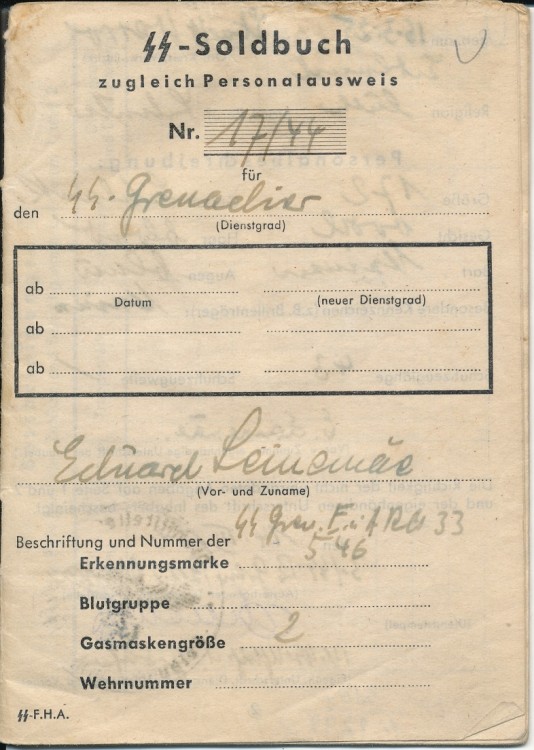 SS-Soldbuch
zugleich Personalausweis
Nr. 17/44
für
den SS-Grenadier
(Dienstgrad)
ab
Datum (neuer Dienstgrad)
ab
ab
Eduard Leinemäe
(Vor- und Zuname)
SS Gren. E. u. A. Rgt 33
Beschriftung und Nummer der
Erkennungsmarke 546
Blutgruppe
Gasmaskengröße 2
Wehrnummer
SS-F.H.A.